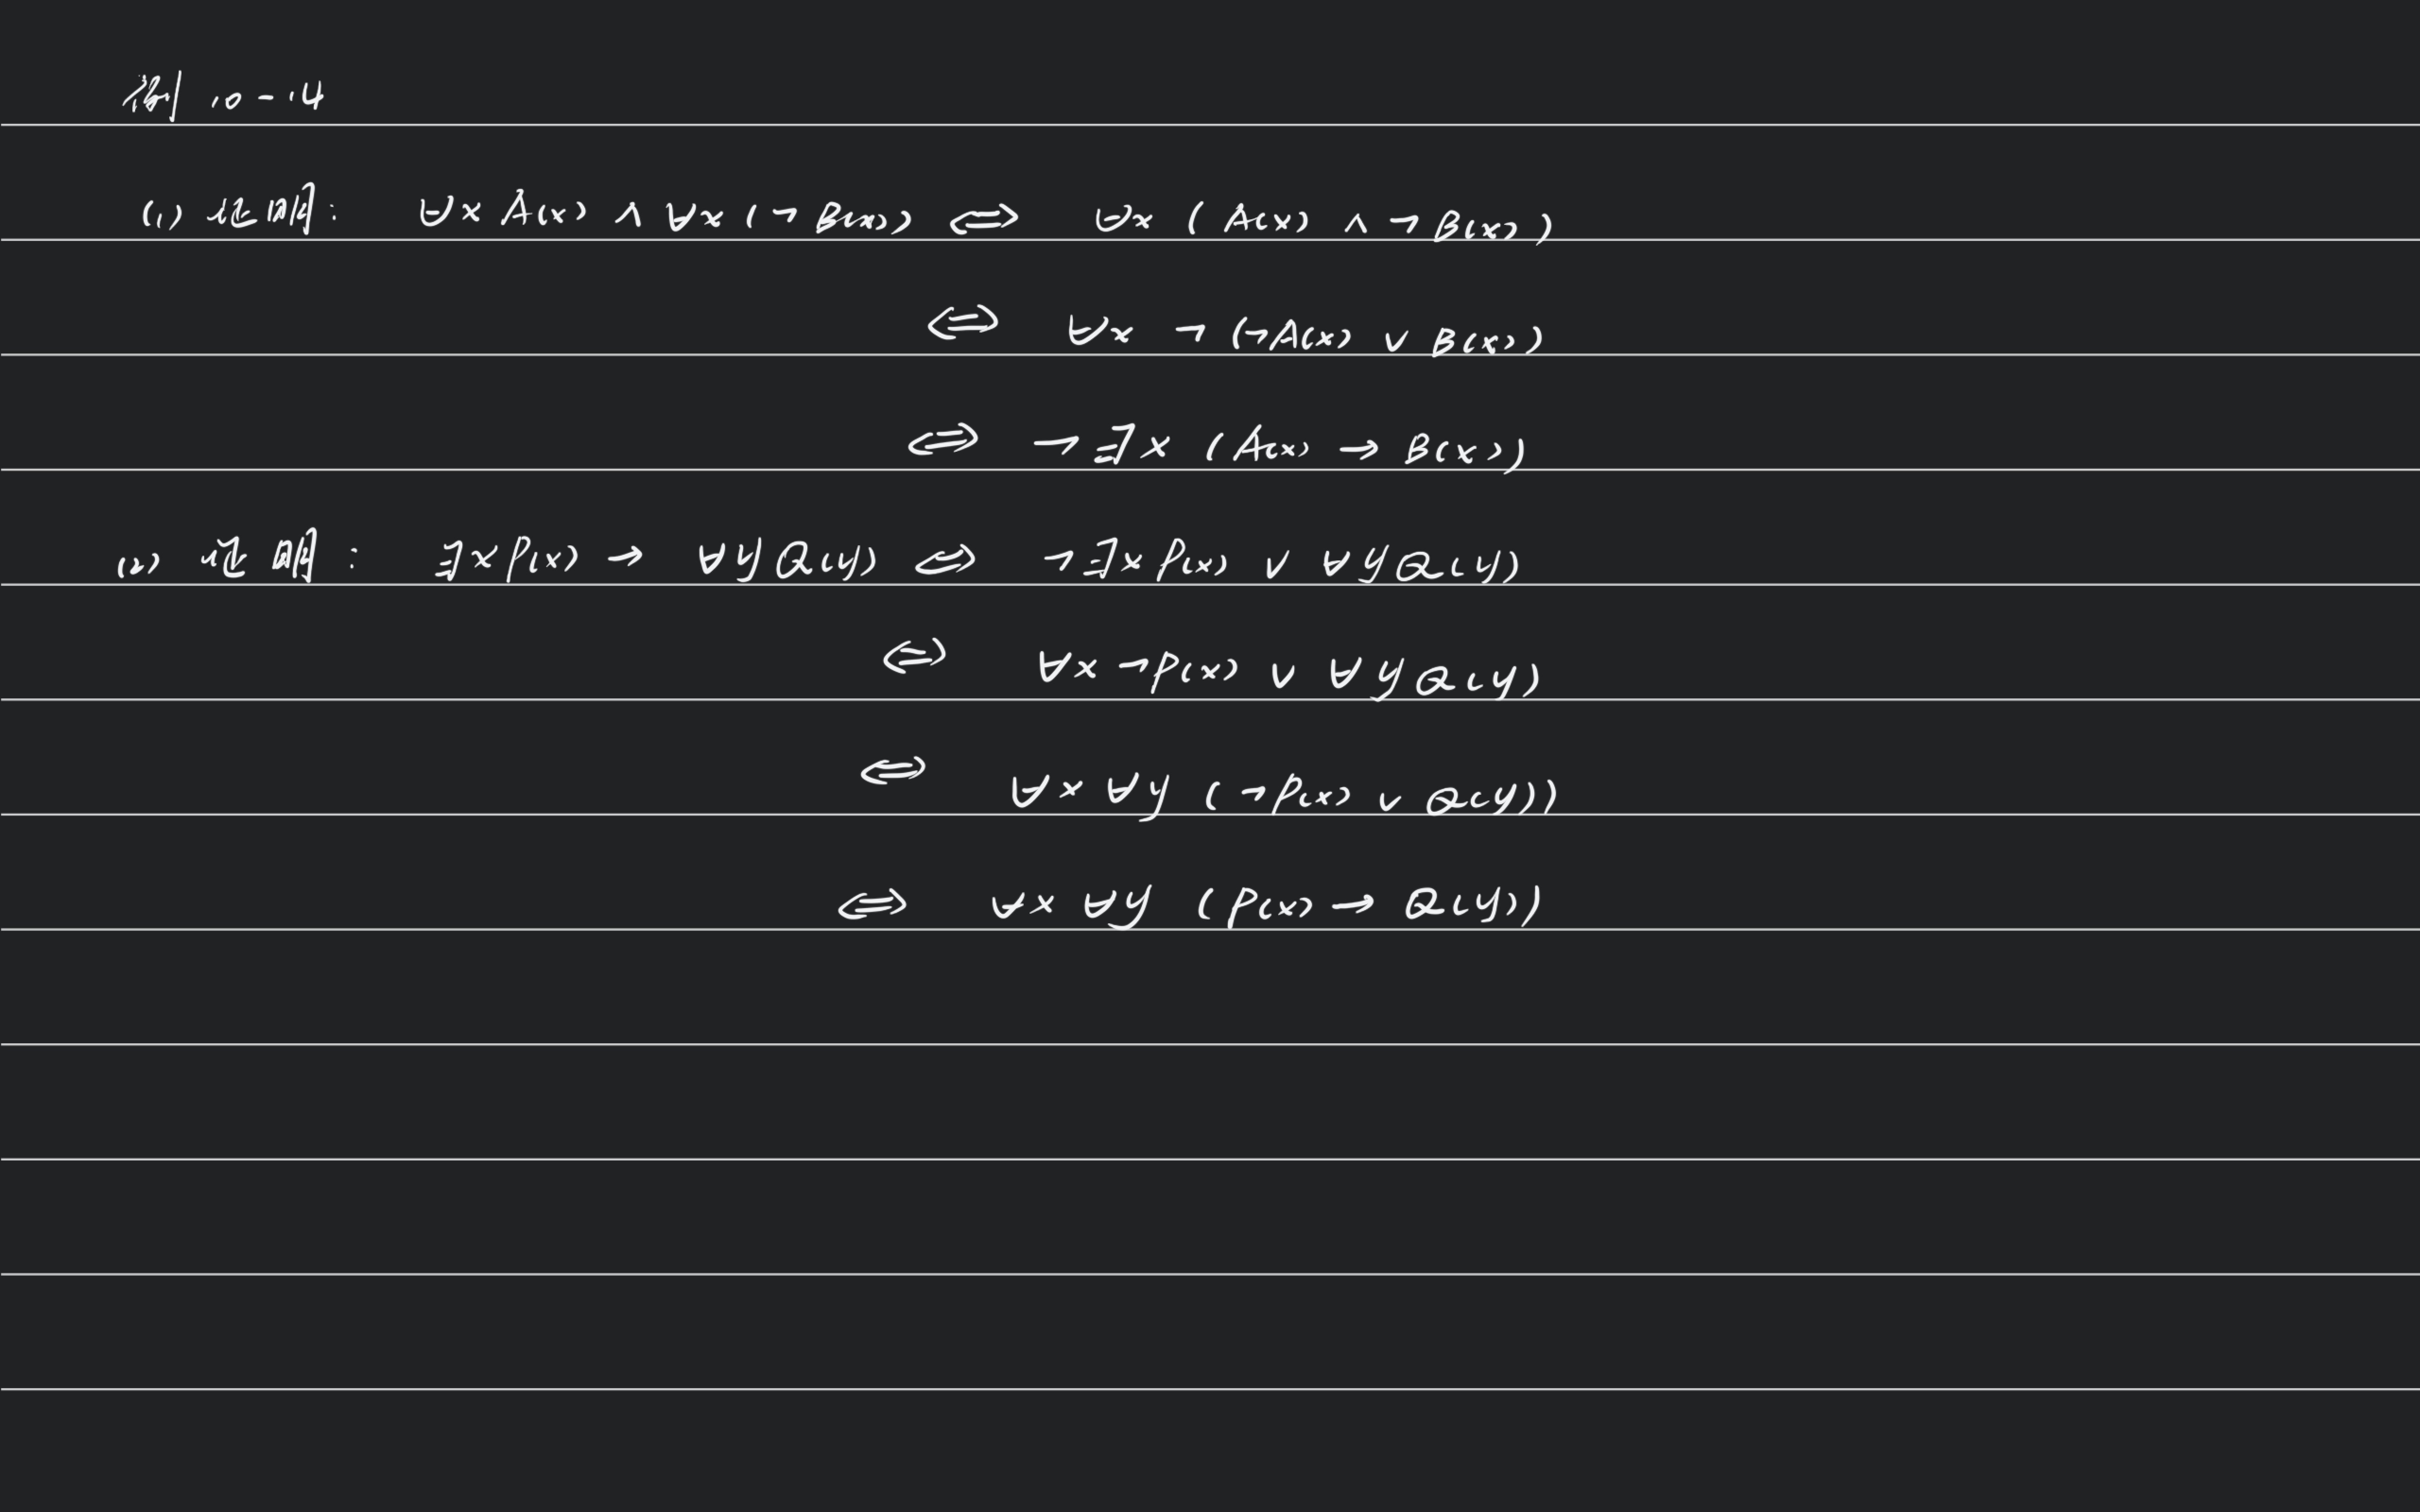 例 10-14
(1) 证明: ∀x A(x) ∧ ∀x (¬ B(x)) ⇔ ∀x ( A(x) ∧ ¬ B(x))
⇔ ∀x ¬ (¬A(x) ∨ B(x))
⇔ ¬∃x (A(x) → B(x))
(2) 证明: ∃x P(x) → ∀y Q(y) ⇔ ¬∃x P(x) ∨ ∀y Q(y)
⇔ ∀x ¬P(x) ∨ ∀y Q(y)
⇔ ∀x ∀y (¬P(x) ∨ Q(y))
⇔ ∀x ∀y (P(x) → Q(y))